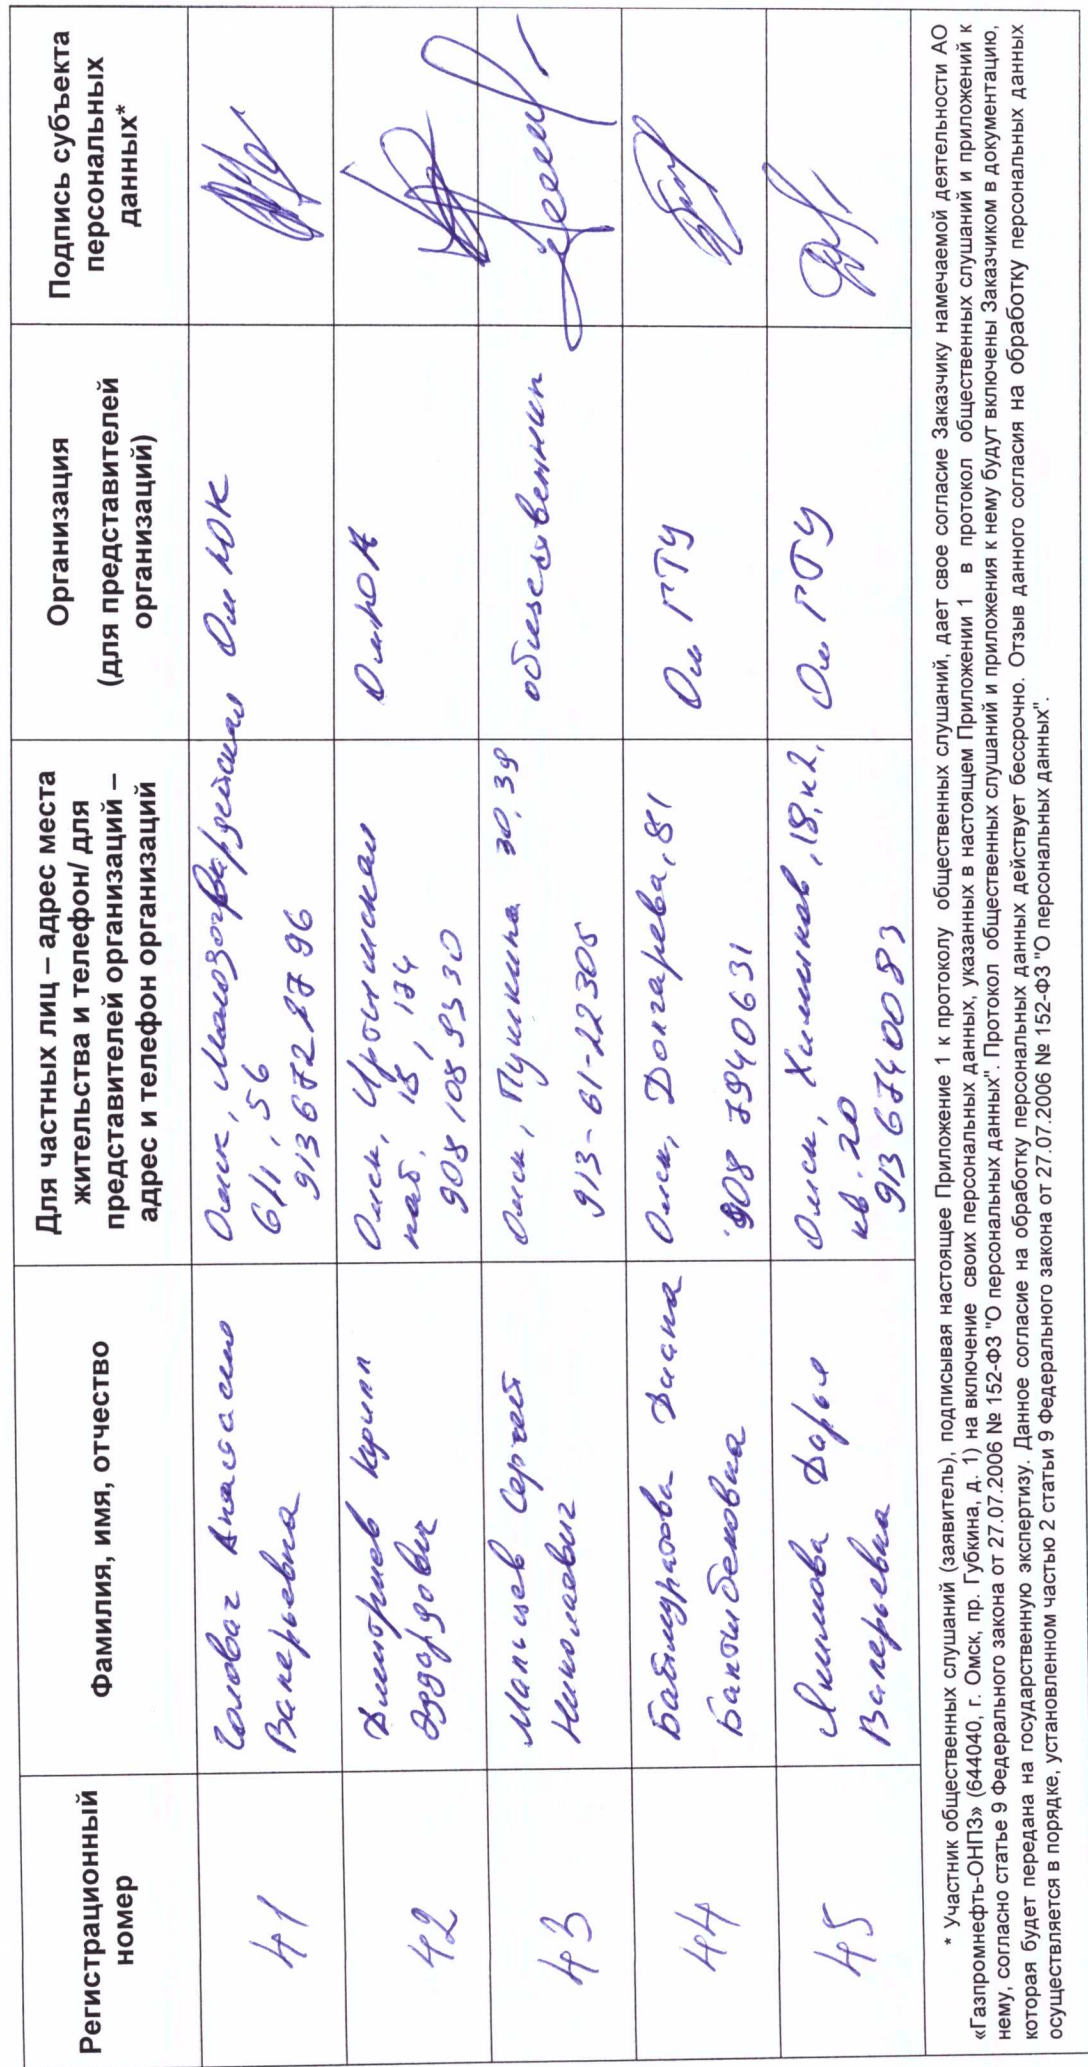 Регистрационный
номер
Фамилия, имя, отчество
Для частных лиц – адрес места
жительства и телефон/ для
представителей организаций –
адрес и телефон организаций
Организация
(для представителей
организаций)
Подпись субъекта
персональных
данных*
41
Головач Анастасия
Валерьевна
Омск, Молодогвардейская
6/1, 56
913 672 87 96
ОмЮК
42
Дмитриев Кирилл
Эдуардович
Омск, Иртышская
наб. 18, 134
908 108 9330
ОмЮК
43
Мальцев Сергей
Николаевич
Омск, Пушкина 30, 39
913-61-22305
общественник
44
Диана
Бактыбековна
Омск, Донгарева, 81
908 7940631
ОмГТУ
45
Акимова Дарья
Валерьевна
Омск, Химиков, 18, к2,
кв. 20
913 6740083
ОмГТУ
* Участник общественных слушаний (заявитель), подписывая настоящее Приложение 1 к протоколу общественных слушаний, дает свое согласие Заказчику намечаемой деятельности АО
«Газпромнефть-ОНПЗ» (644040, г. Омск, пр. Губкина, д. 1) на включение своих персональных данных, указанных в настоящем Приложении 1 в протокол общественных слушаний и приложений к
нему, согласно статье 9 Федерального закона от 27.07.2006 № 152-ФЗ "О персональных данных". Протокол общественных слушаний и приложения к нему будут включены Заказчиком в документацию,
которая будет передана на государственную экспертизу. Данное согласие на обработку персональных данных действует бессрочно. Отзыв данного согласия на обработку персональных данных
осуществляется в порядке, установленном частью 2 статьи 9 Федерального закона от 27.07.2006 № 152-ФЗ "О персональных данных".